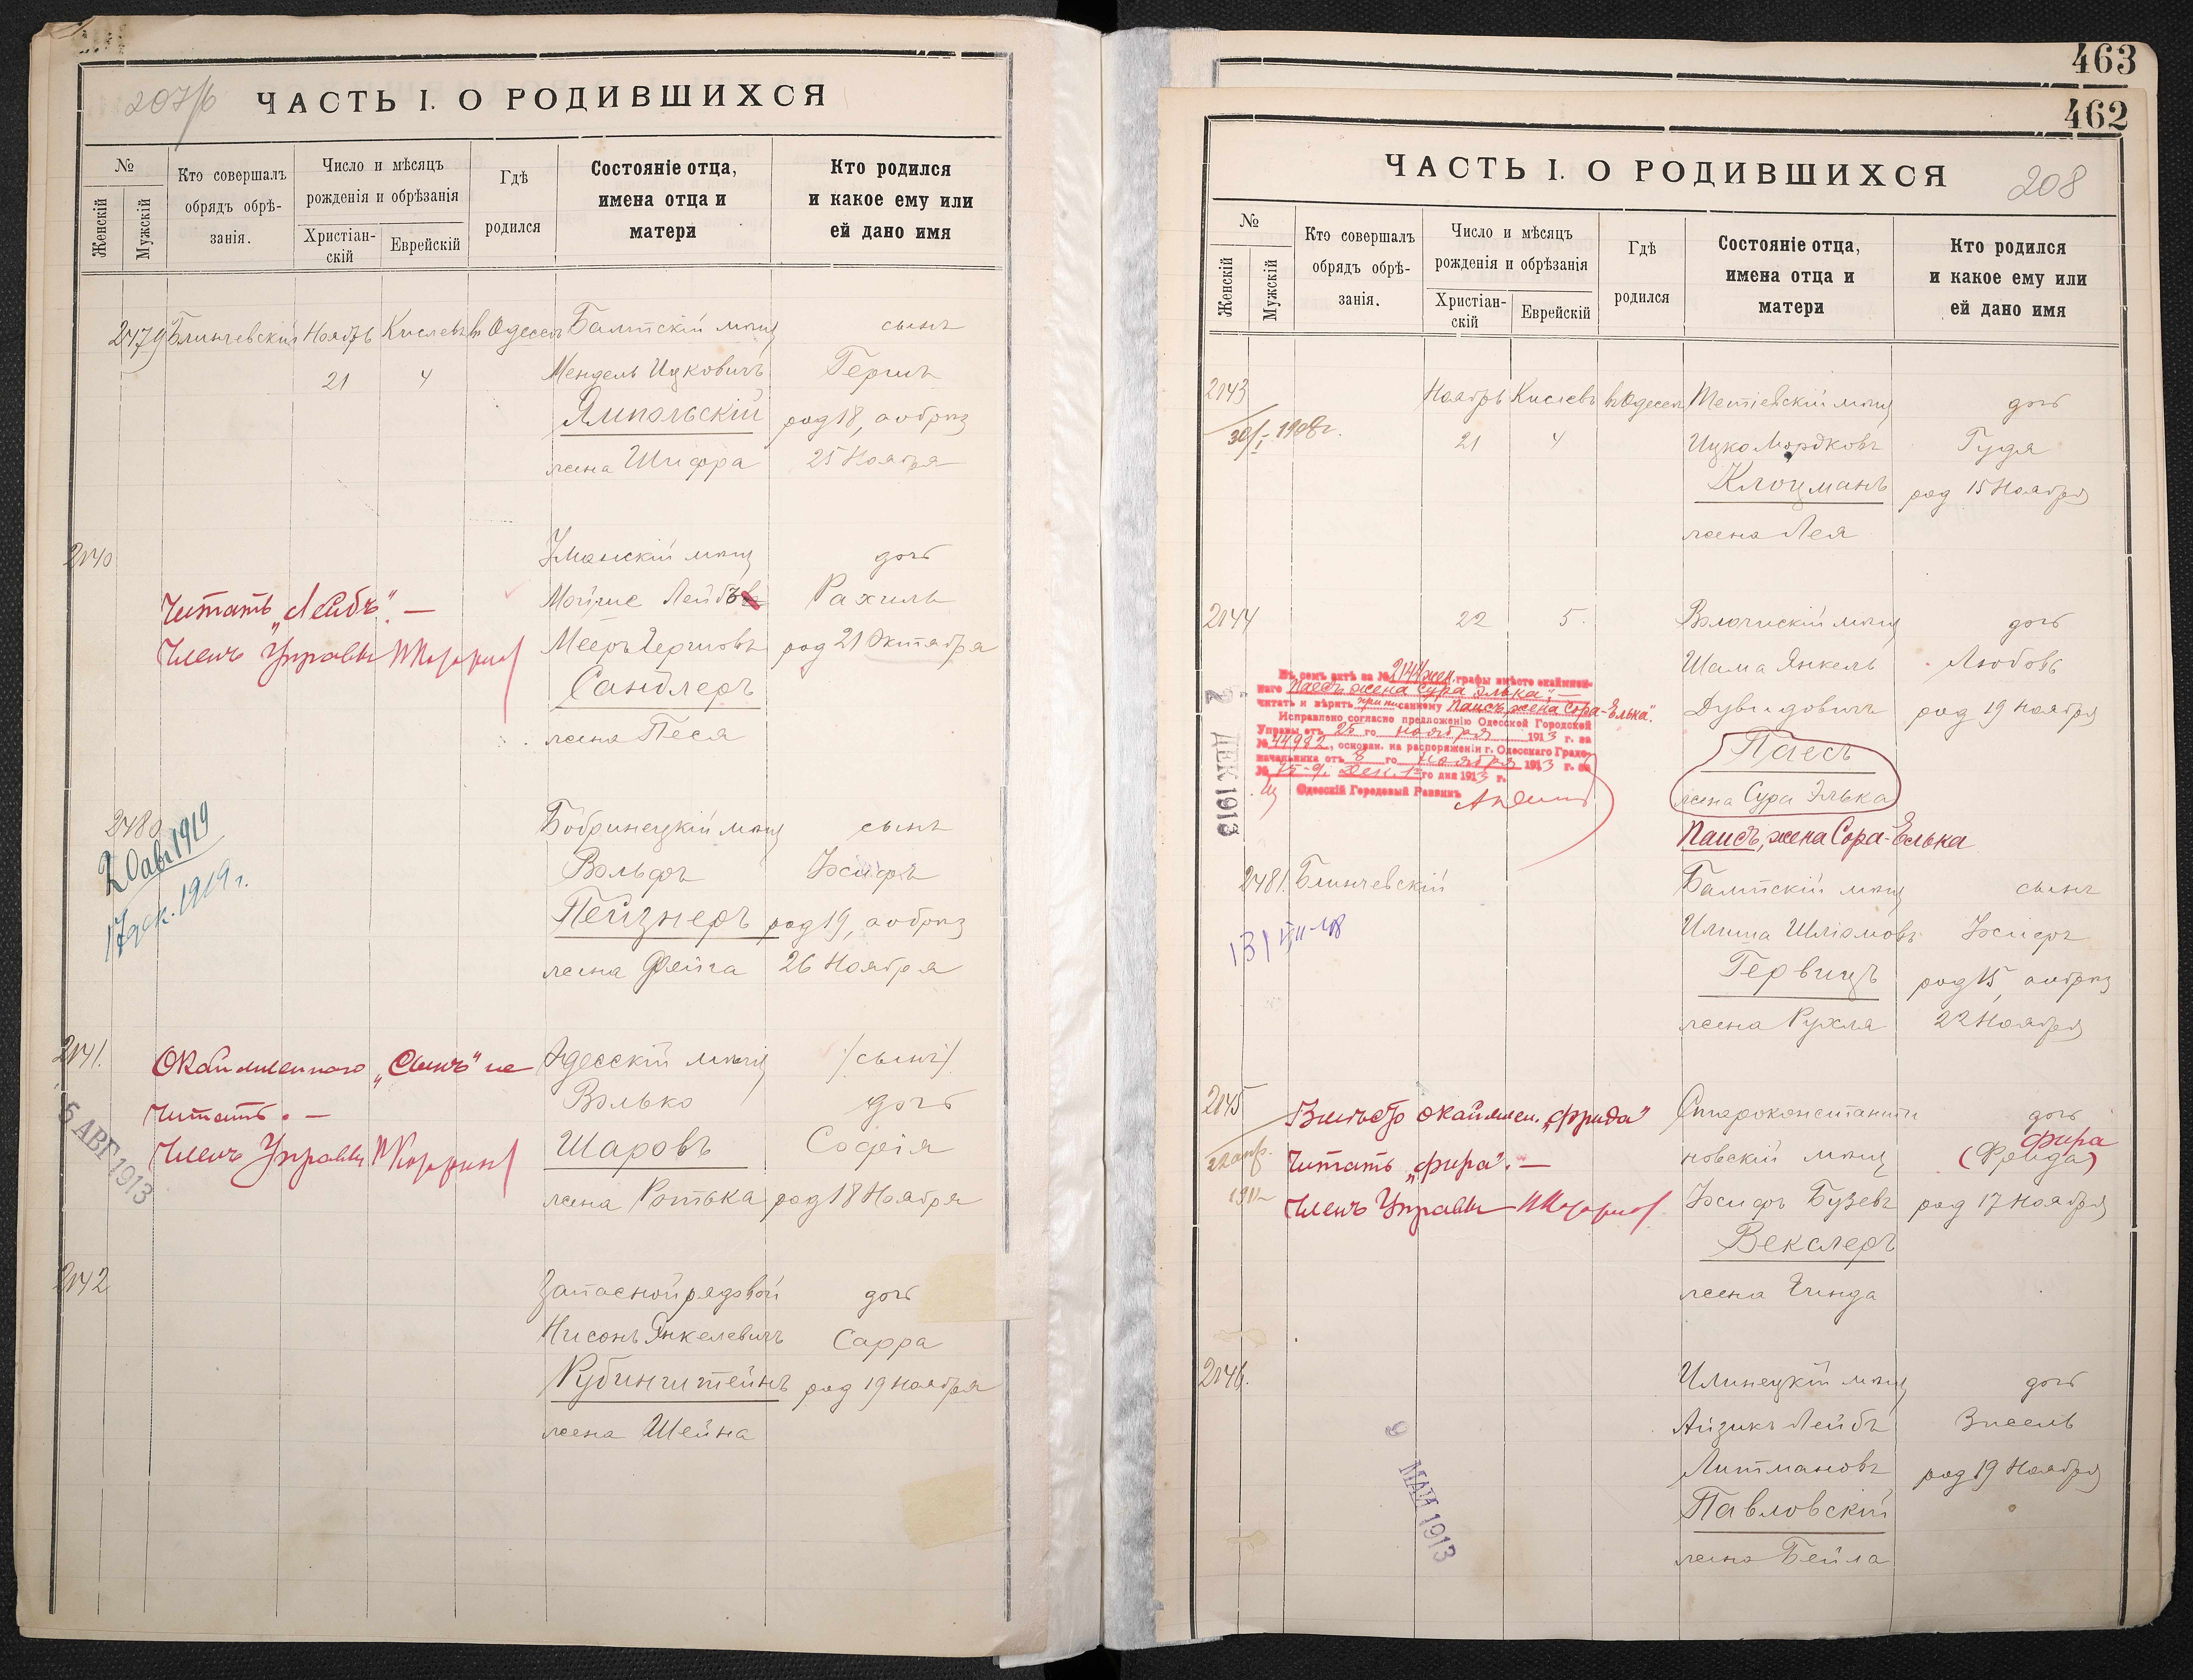 207/б
ЧАСТЬ I. О РОДИВШИХСЯ
№
Женскій
Мужскій
Кто совершалъ
обрядъ обрѣ-
занія.
Число и мѣсяцъ
рожденія и обрѣзанія
Христіан-
скій
Еврейскій
Гдѣ
родился
Состояніе отца,
имена отца и
матери
Кто родился
и какое ему или
ей дано имя
2479 Блинчевскій Ноябрь Кислевъ въ Одессѣ Балтскій мѣщ сынъ
21 4 Мендель Ицковичъ Гершъ
Ямпольскій род 18, а обрѣз
жена Шифра 25 Ноября
2140 Уманскій мѣщ дочь
Читать „Лейбъ“. — Мойше Лейбъ Рахиль
Членъ Управы Мееръ Гершовъ род 21 Октября
Сандлеръ
жена Песя
2480 Бобринецкій мѣщ сынъ
20 авг 1919 Вольфъ Іосифъ
17 дек. 1919 г. Пейзнеръ род 19, а обрѣз
жена Фейга 26 Ноября
2141. Окаймленнаго „Сынъ“ не Одесскій мѣщ /сынъ/
читать. — Волько дочь
5 АВГ 1913
Членъ Управы Шаровъ Софія
жена Ротька род 18 Ноября
2142 Запасной рядовой дочь
Нисонъ Янкелевичъ Сарра
Рубинштейнъ род 19 Ноября
жена Шейна
463
462
ЧАСТЬ I. О РОДИВШИХСЯ
208
№
Женскій
Мужскій
Кто совершалъ
обрядъ обрѣ-
занія.
Число и мѣсяцъ
рожденія и обрѣзанія
Христіан-
скій
Еврейскій
Гдѣ
родился
Состояніе отца,
имена отца и
матери
Кто родился
и какое ему или
ей дано имя
2143 Ноябрь Кислевъ въ Одессѣ Тетіевскій мѣщ дочь
30/I-1908г. 21 4 Ицко Мордковъ Гудя
Клоцманъ род 15 Ноября
жена Лея
2144 22 5. Волочискій мѣщ дочь
Шама Янкель Любовь
Дувидовичъ род 19 Ноября
Паесъ
жена Сура Элька
Паисъ, жена Сора-Елька
Въ семъ актѣ за № 2144 жен. графы вмѣсто окаймлен-
наго „Паесъ жена Сура Элька“, —
читать и вѣрить приписанному „Паисъ жена Сора-Елька“.
Исправлено согласно предложенію Одесской Городской
Управы отъ 22 го ноября 1913 г. за
№ 44982, основан. на распоряженіи г. Одесскаго Градо-
начальника отъ 8 го ноября 1913 г. за
Дек. 1 го дня 1913 г.
Одесскій Городовый Раввинъ
2 ДЕК 1913
2481. Блинчевскій Балтскій мѣщ сынъ
Илиша Шліомовъ Іосифъ
Гервицъ род 15, а обрѣз
жена Рухля 22 Ноября
2145 Вмѣсто окаймлен. „Фрида“ Староконстанти дочь
Читать „Фира“. — новскій мѣщ Фира
(Фрида)
1912
Членъ Управы Іосифъ Бузевъ род 17 Ноября
Векслеръ
жена Гинда
2146. Илинецкій мѣщ дочь
Айзикъ Лейбъ Зисель
Литмановъ род 19 Ноября
Павловскій
жена Бейла
9 МАЙ 1913